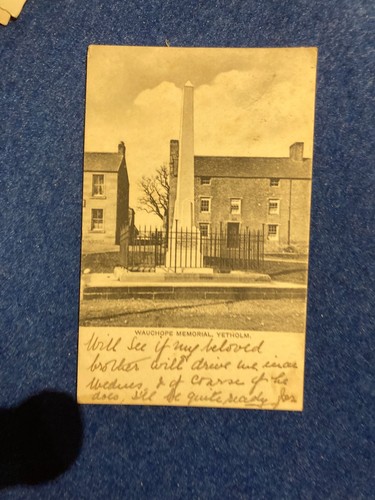 WAUCHOPE MEMORIAL, YETHOLM.
Will see if my beloved
brother will drive me in on
Wednes, & of course if he
does, I'll be quite ready for